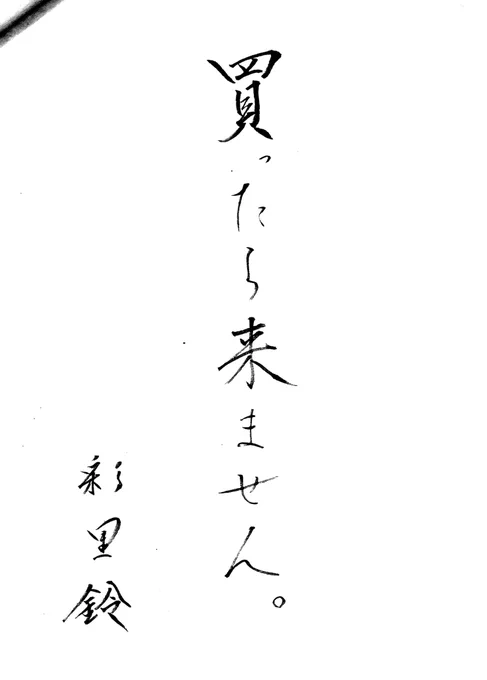 買ったら来ません。
彩里鈴